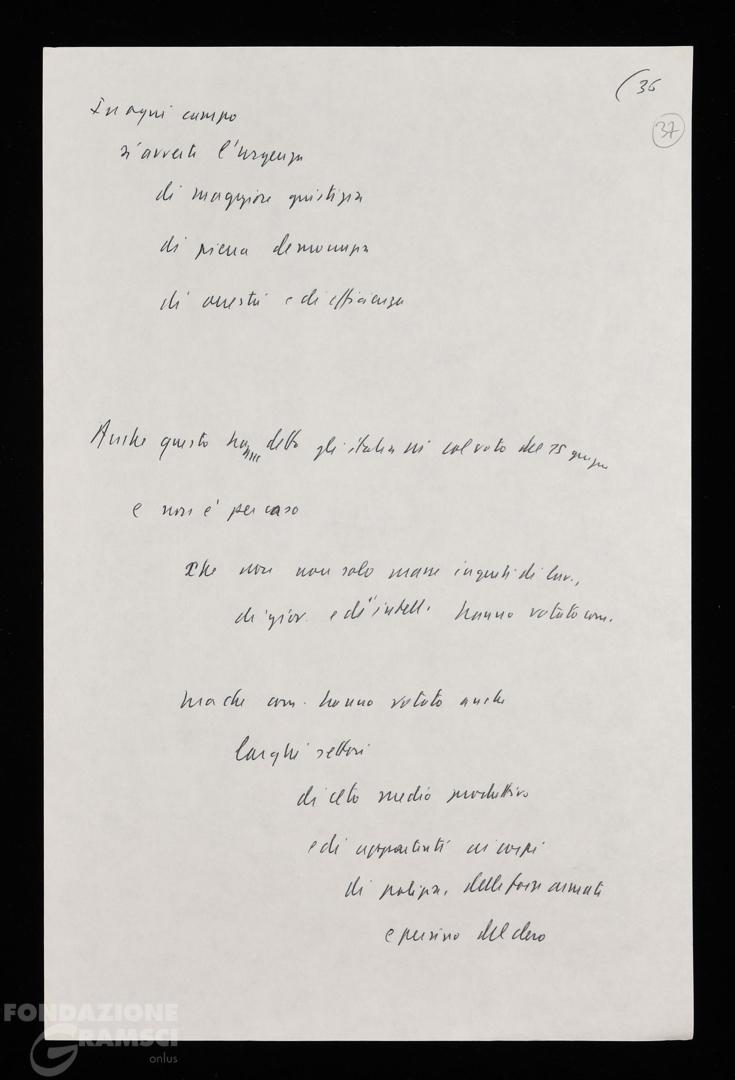 (36
37
In ogni campo
s'avverte l'urgenza
di maggiore giustizia
di piena democrazia
di onestà e di efficienza
Anche questo hanno detto gli italiani col voto del 15 giugno
e non è per caso
che non solo masse ingenti di lav.,
di giov. e di intell. hanno votato com.
ma che com. hanno votato anche
larghi settori
di ceto medio produttivo
e di appartenenti ai corpi
di polizia, delle forze armate
e persino del clero
FONDAZIONE
GRAMSCI
onlus